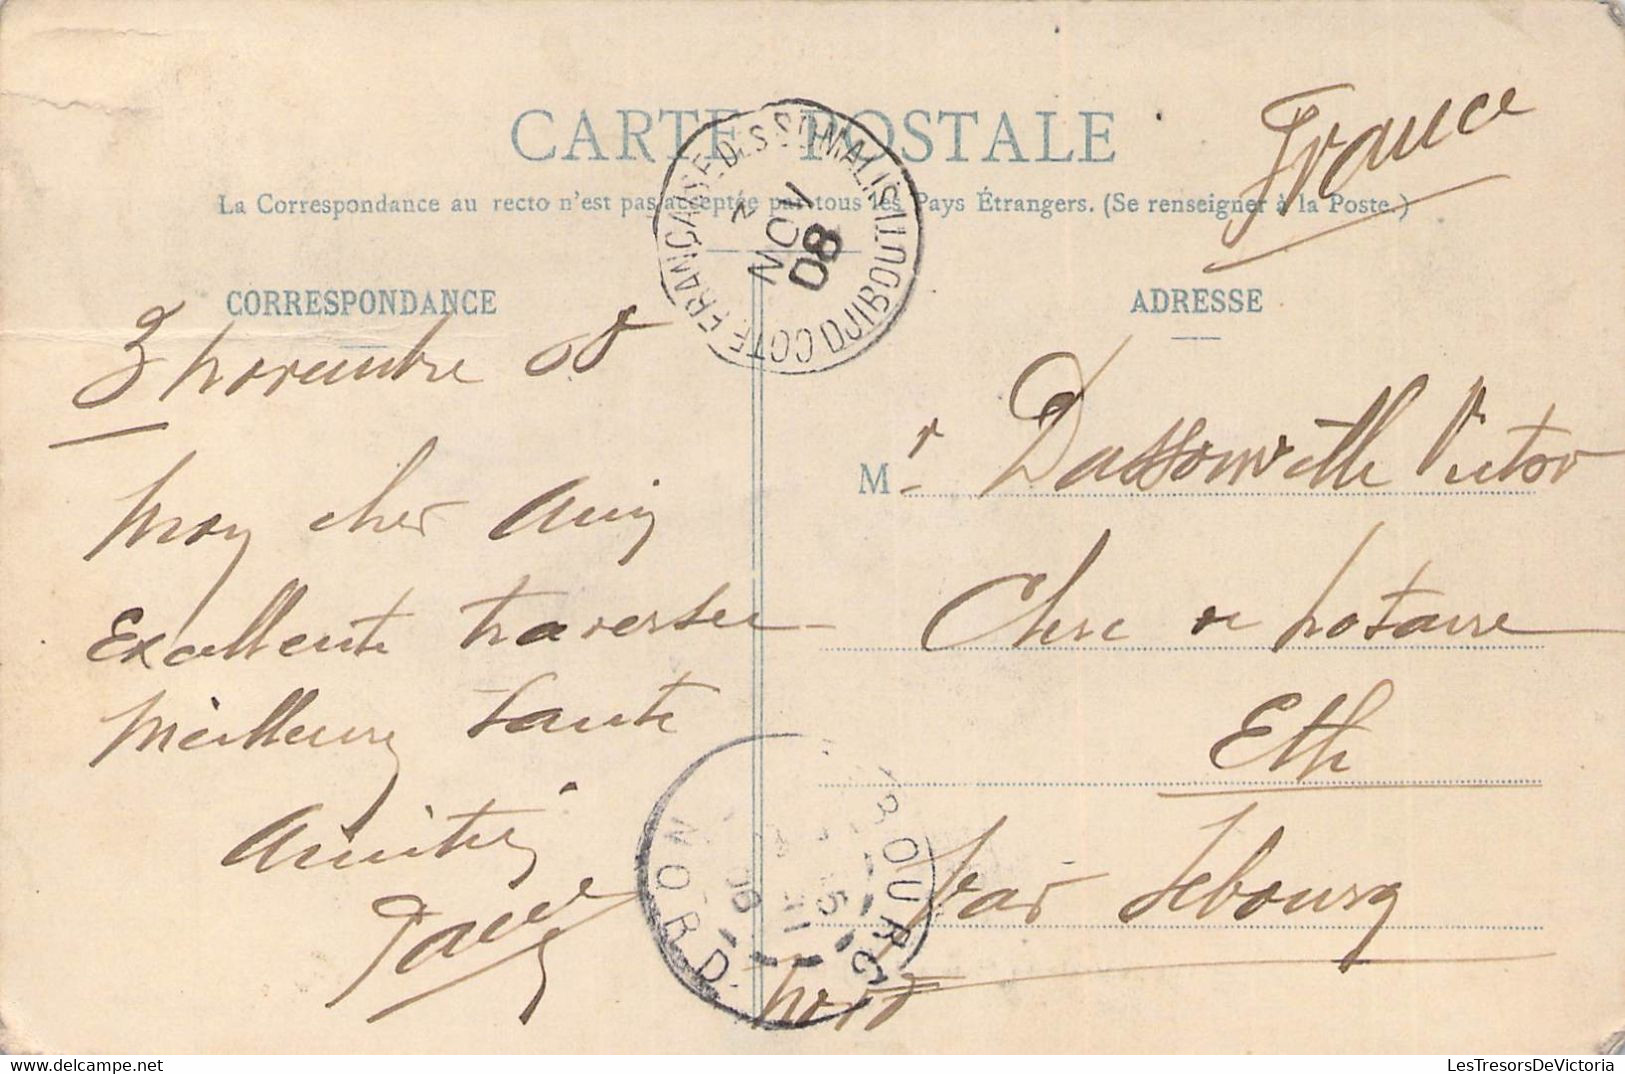 CARTE POSTALE
La Correspondance au recto n'est pas acceptée par tous les Pays Étrangers. (Se renseigner à la Poste.)
France
COTE FRANÇAISE DES SOMALIS DJIBOUTI
2
NOV
08
CORRESPONDANCE
3 novembre 08
Mon cher Ami
Excellente traversée
Meilleure santé
Amitiés
ADRESSE
Mr Dassonville Victor
Clerc de notaire
Eth
par Sebourg
Nord
BOURG
NORD
08
LesTresorsDeVictoria